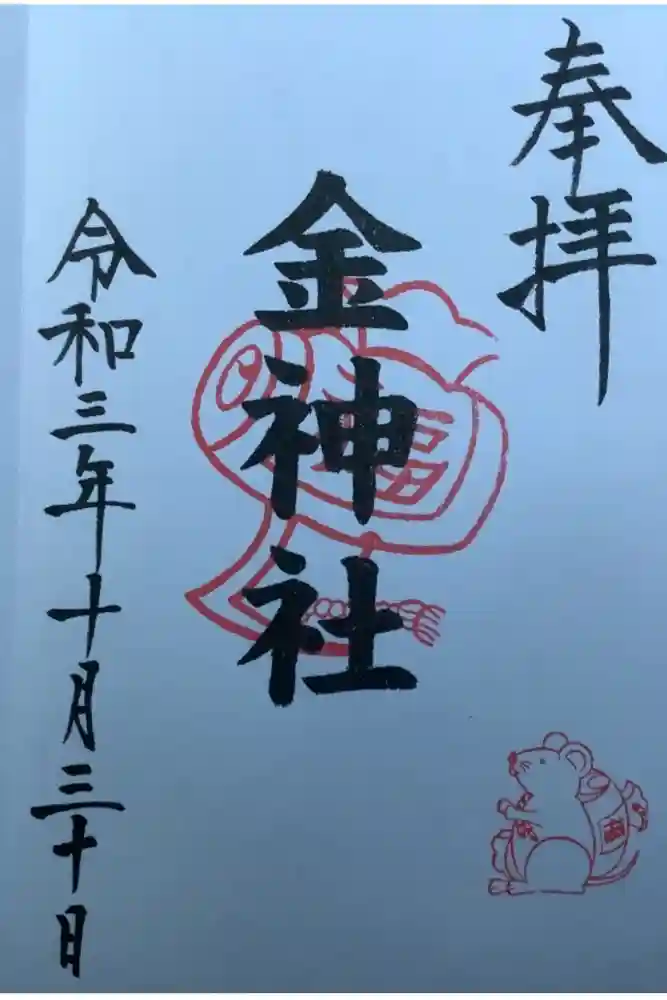 奉拝
金神社
令和三年十月三十日
福
福